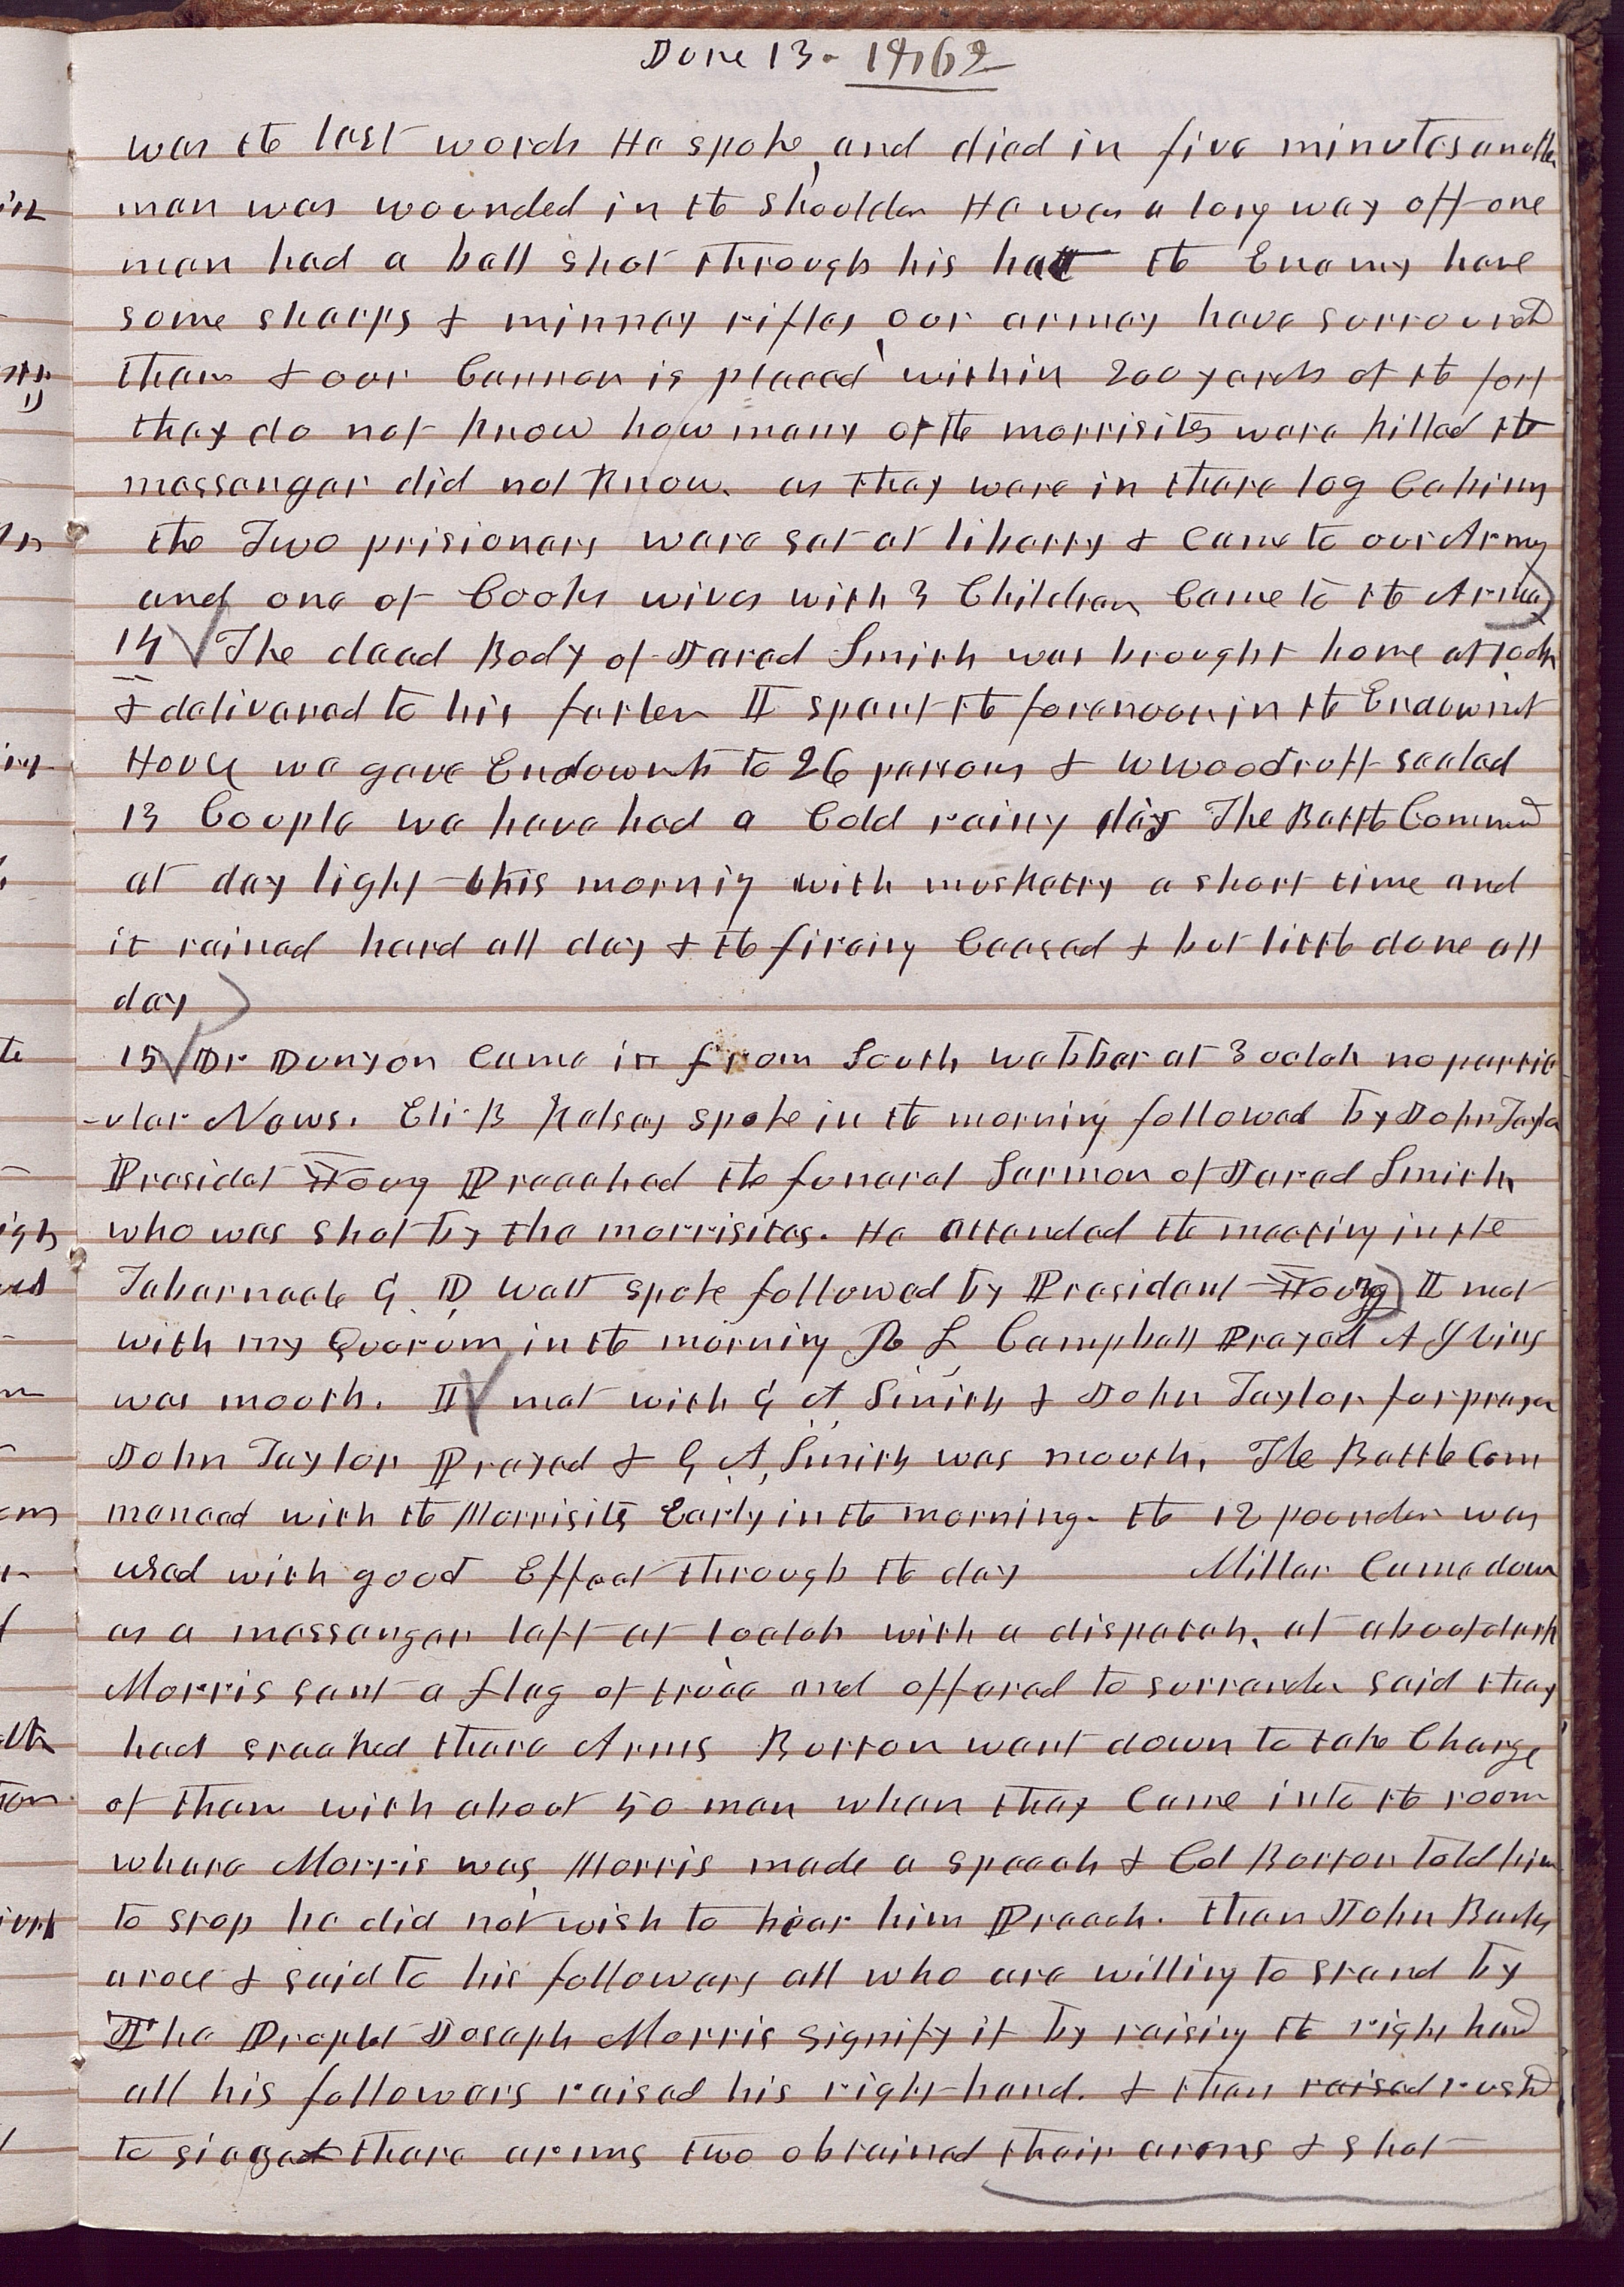 June 13. 1862
was the last words He spoke, and died in five minutes another
man was wounded in the shoulder He was a long way off one
man had a ball shot through his hatt the Enemy have
some sharps & minney rifles, our army have surround
them & our Cannon is placed within 200 yards of the fort
they do not know how many of the morrisites were killed the
messenger did not know. as they were in there log Cabins
the Two prisioners were set at liberty & came to our Army
and one of Cooks wives with 3 Children Came to the Army
14 The dead Body of Jared Smith was brought home at 1 oclk
& delivered to his father I spent the forenoon in the Endowmt
House we gave Endowmts to 26 persons & W Woodruff sealed
13 Couple we have had a Cold rainy day The Battle Commed
at day light this mornig with musketry a short time and
it rained hard all day & the fireing Ceased & but little done all
day
15 Dr Dunyon Came in from South webber at 3 oclok no partic
-ular News. Eli B Kelsey spoke in the morning followed by John Taylor
Presidet Young Preached the funeral Sermon of Jared Smith
who was shot by the morrisites. He attended the meeting in the
Tabernacle G. D. Watt spoke followed by President Young I met
with my Quorum in the morning R L Campbell Prayed A
was mouth. I met with G A Smith & John Taylor for prayer
John Taylor Prayed & G. A. Smith was mouth. The Battle Com
menced with the Morrisites Early in the morning. the 12 pounder was
used with good Effect through the day Miller Came down
as a messenger left at 1 oclok with a dispatch. at about dark
Morris sent a flag of truce and offered to surrender said they
had stacked there Arms Burton went down to take Charge
of them with about 50 men when they Came into the room
where Morris was, Morris made a speech & Col Burton told him
to stop he did not wish to hear him Preach. then John Banks
arose & said to his followers all who are willing to stand by
The Prophet Joseph Morris signify it by raising the right hand
all his followers raised his right hand. & then raised rushd
to siezed there arms two obtained their arms & shot